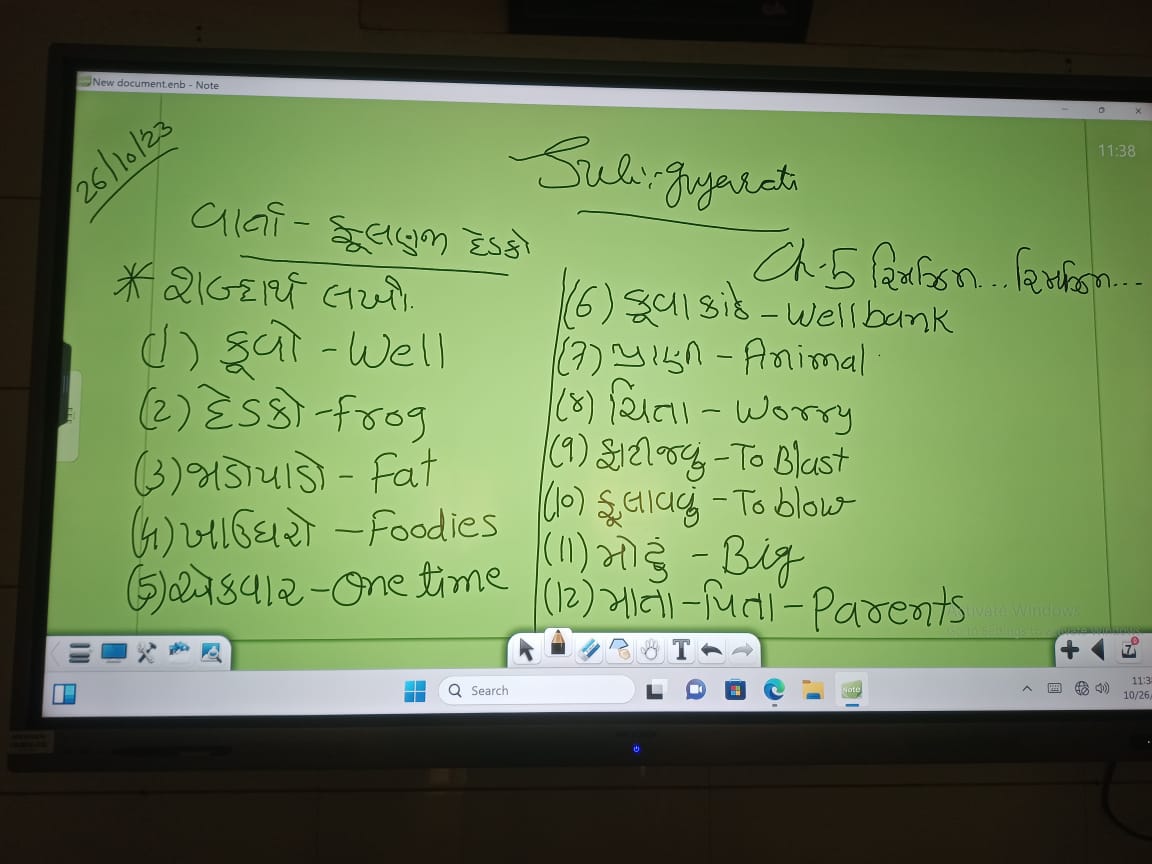 New document.enb - Note
11:38
26/10/23
Sub:-Gujarati
વાર્તા - ફૂલણજી દેડકો
Ch-5 રિમઝિમ... રિમઝિમ...
* શબ્દાર્થ લખો.
(૧) કૂવો - Well
(૨) દેડકો - frog
(૩) જાડોપાડો - Fat
(૪) ખાઉધરો - Foodies
(૫) એકવાર - One time
(૬) કૂવા કાંઠે - Well bank
(૭) પ્રાણી - Animal
(૮) ચિંતા - Worry
(૯) ફાટીજવું - To Blast
(૧૦) ફૂલાવવું - To blow
(૧૧) મોટું - Big
(૧૨) માતા - પિતા - Parents
Activate Windows
Search
10/26/